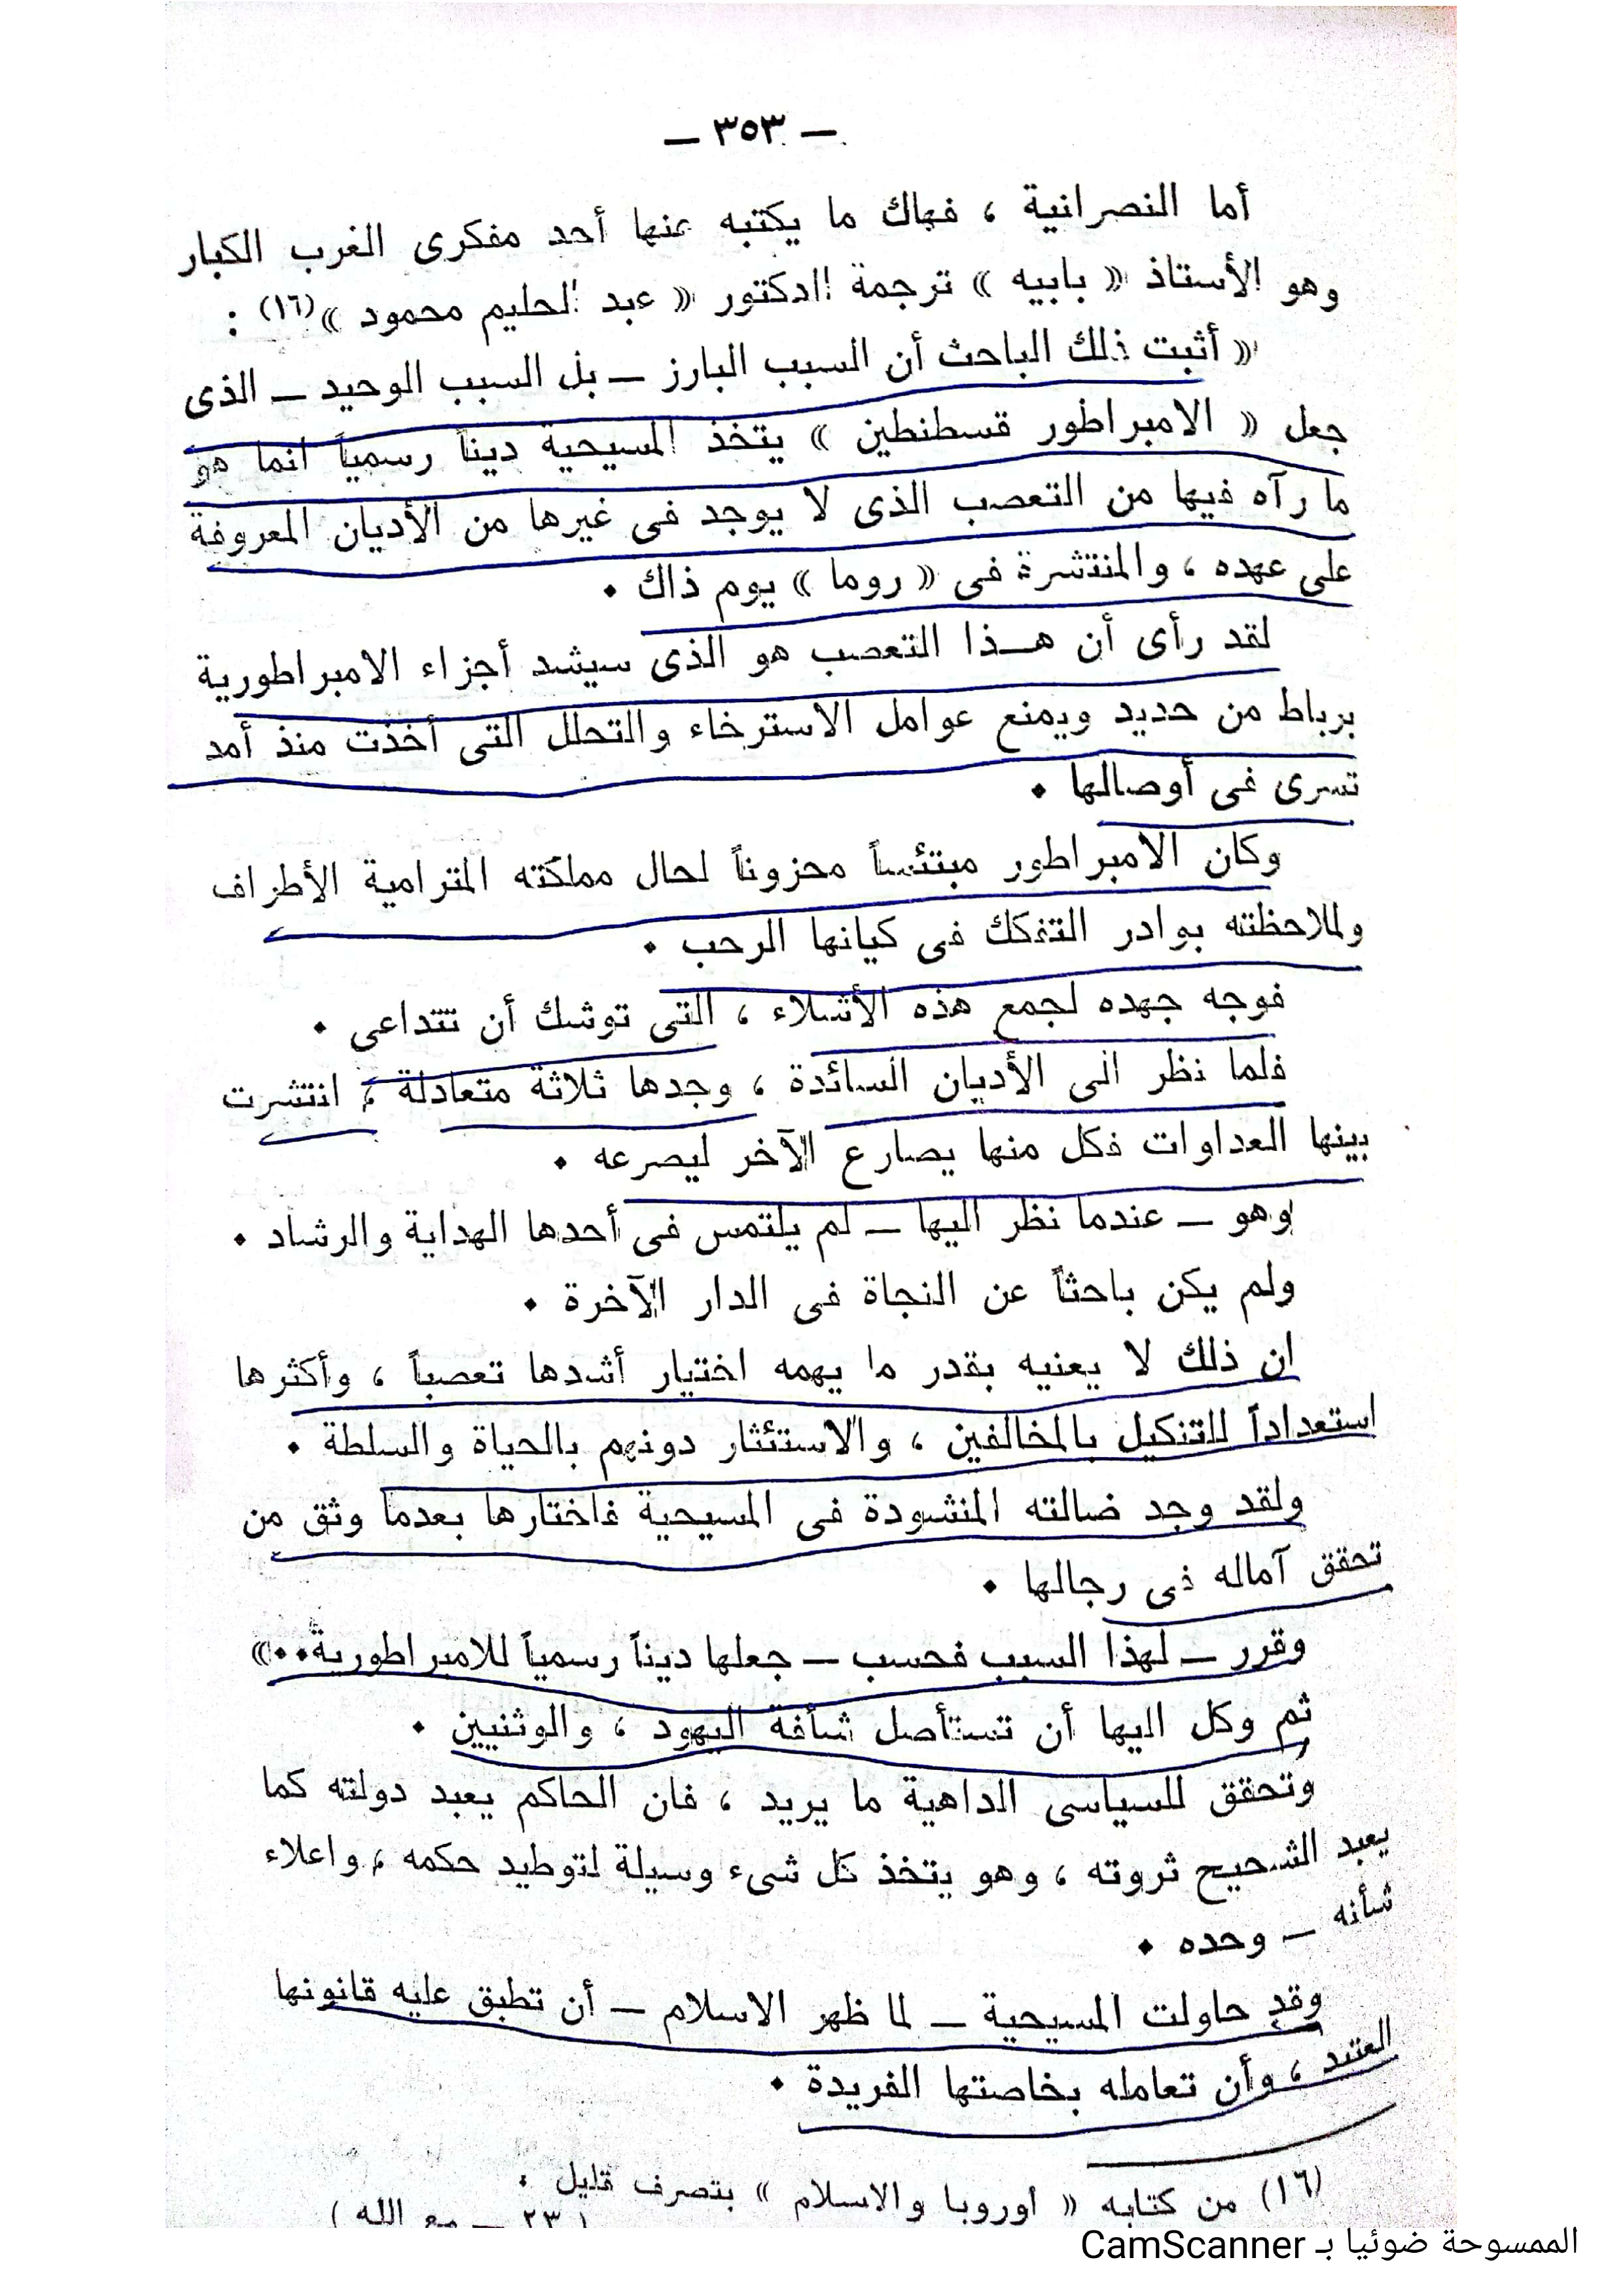 — ٣٥٣ —
أما النصرانية ، فهاك ما يكتبه عنها أحد مفكرى الغرب الكبار
وهو الأستاذ « بابيه » ترجمة الدكتور « عبد الحليم محمود »(١٦) :
« أثبت ذلك الباحث أن السبب البارز — بل السبب الوحيد — الذى
جعل « الامبراطور قسطنطين » يتخذ المسيحية ديناً رسمياً انما هو
ما رآه فيها من التعصب الذى لا يوجد فى غيرها من الأديان المعروفة
على عهده ، والمنتشرة فى « روما » يوم ذاك .
لقد رأى أن هــذا التعصب هو الذى سيشد أجزاء الامبراطورية
برباط من حديد ويمنع عوامل الاسترخاء والتحلل التى أخذت منذ أمد
تسرى فى أوصالها .
وكان الامبراطور مبتئساً محزوناً لحال مملكته المترامية الأطراف
ولملاحظته بوادر التفكك فى كيانها الرحب .
فوجه جهده لجمع هذه الأشلاء ، التى توشك أن تتداعى .
فلما نظر الى الأديان السائدة ، وجدها ثلاثة متعادلة ، انتشرت
بينها العداوات فكل منها يصارع الآخر ليصرعه .
وهو — عندما نظر اليها — لم يلتمس فى أحدها الهداية والرشاد .
ولم يكن باحثاً عن النجاة فى الدار الآخرة .
ان ذلك لا يعنيه بقدر ما يهمه اختيار أشدها تعصباً ، وأكثرها
استعداداً للتنكيل بالمخالفين ، والاستئثار دونهم بالحياة والسلطة .
ولقد وجد ضالته المنشودة فى المسيحية فاختارها بعدما وثق من
تحقق آماله فى رجالها .
وقرر — لهذا السبب فحسب — جعلها ديناً رسمياً للامبراطورية..»
ثم وكل اليها أن تستأصل شأفة اليهود ، والوثنيين .
وتحقق للسياسى الداهية ما يريد ، فان الحاكم يعبد دولته كما
يعبد الشحيح ثروته ، وهو يتخذ كل شىء وسيلة لتوطيد حكمه ، واعلاء
شأنه — وحده .
وقد حاولت المسيحية — لما ظهر الاسلام — أن تطبق عليه قانونها
العتيد ، وأن تعامله بخاصتها الفريدة .
(١٦) من كتابه « اوروبا والاسلام » بتصرف قليل .
( ٢٣ — مع الله )
الممسوحة ضوئيا بـ CamScanner